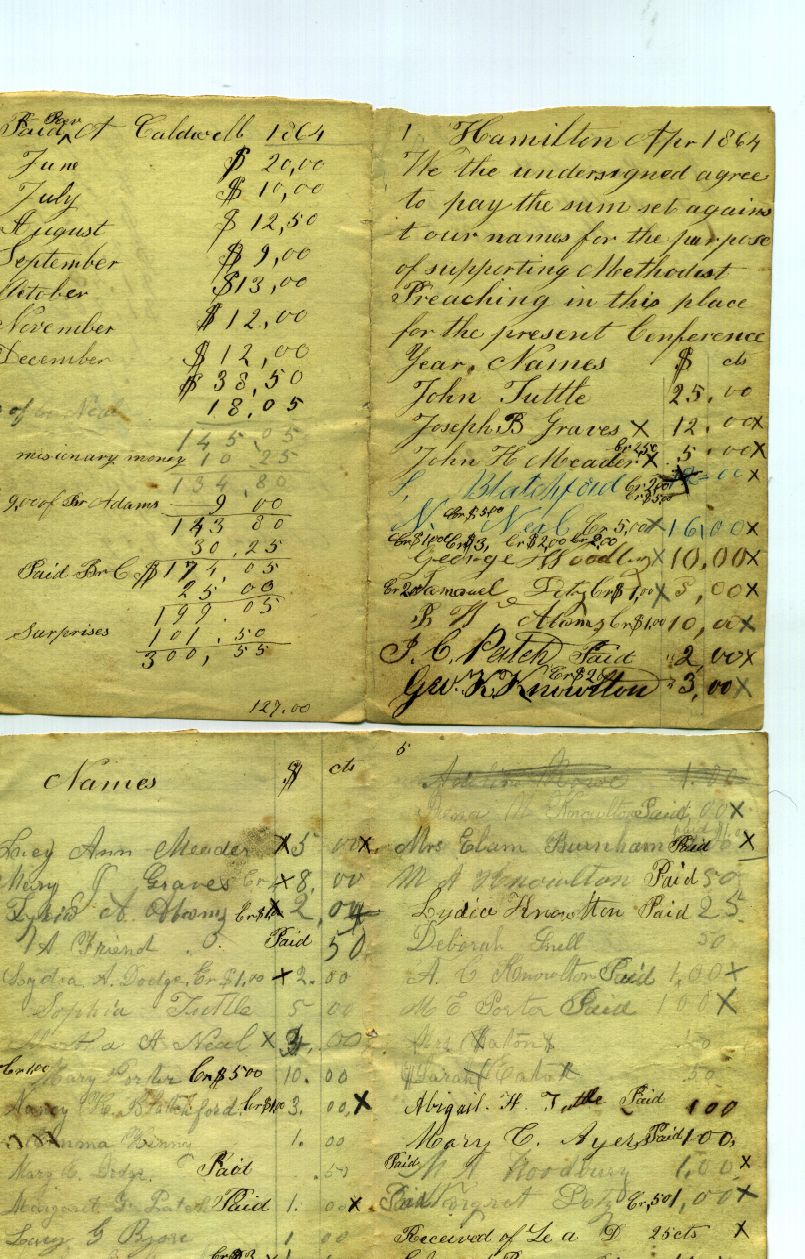 Paid Rev A Caldwell 1864
June $ 20,00
July $ 10,00
August $ 12,50
September $ 9,00
October $13,00
November $ 12,00
December $ 12,00
$ 38,50
of Neal 18,05
145,05
missionary money 10 25
134,80
9,00 of Br Adams 9 00
143 80
30,25
Paid Br C. $174,05
25 00
199.05
Surprises 101.50
300,55
127.00
1 Hamilton Apr 1864
We the undersigned agree
to pay the sum set agains
t our names for the purpose
of supporting Methodist
Preaching in this place
for the present Conference
Year. Names $ cts
John Tuttle 25.00
Joseph B Graves X 12.00X
Cr 250
John H Meader X 5.00X
S, Blatchford Cr 200 X
Cr $500
Cr $500
N Neal Cr 5,00X 16,00X
Cr $1,00 Cr $3, Cr $2,00 Cr 2,00
George Woodbury X 10,00X
Samuel Cr $1,00 X 5,00X
Adams Cr $1,00 10,00X
J. C. Patch Paid " 2,00X
Cr $2
Geo. K. Knowlton " 3,00X
Names $ cts
Lucy Ann Meader X5 00X
Mary J Graves Cr X8. 00
A. Adams Cr $1 X 2,
A Friend . . Paid 50
Lydia A. Dodge. Cr $1,00 X2. 00
Sophia Tuttle 5 00
Martha A Neal X 3. 00
Cr 100 Mary Porter Cr $500 10. 00
Nancy H. Blatchford. Cr $100 3. 00,X
Emma Kinny 1. 00
Mary C. Dodge. Paid .50
Margaret G. Patch Paid 1. 00X
Lucy G 1 00
Cr $3 X
5
1.00
M Knowlton Paid 1,00X
Mrs Elam Burnham Paid X
M A Knowlton Paid 50
Lydia Knowlton Paid 25
Deborah 50
A. C Knowlton Paid 1,00X
M E Porter Paid 100X
Mrs Eaton X 50
Sarah Eaton X 50
Abigail. H. Tuttle Paid 100
Mary C. Ayers Paid 100.
Paid A Woodbury 1,00 X
Paid Cr,50 1,00X
Received of Le a D 25cts X